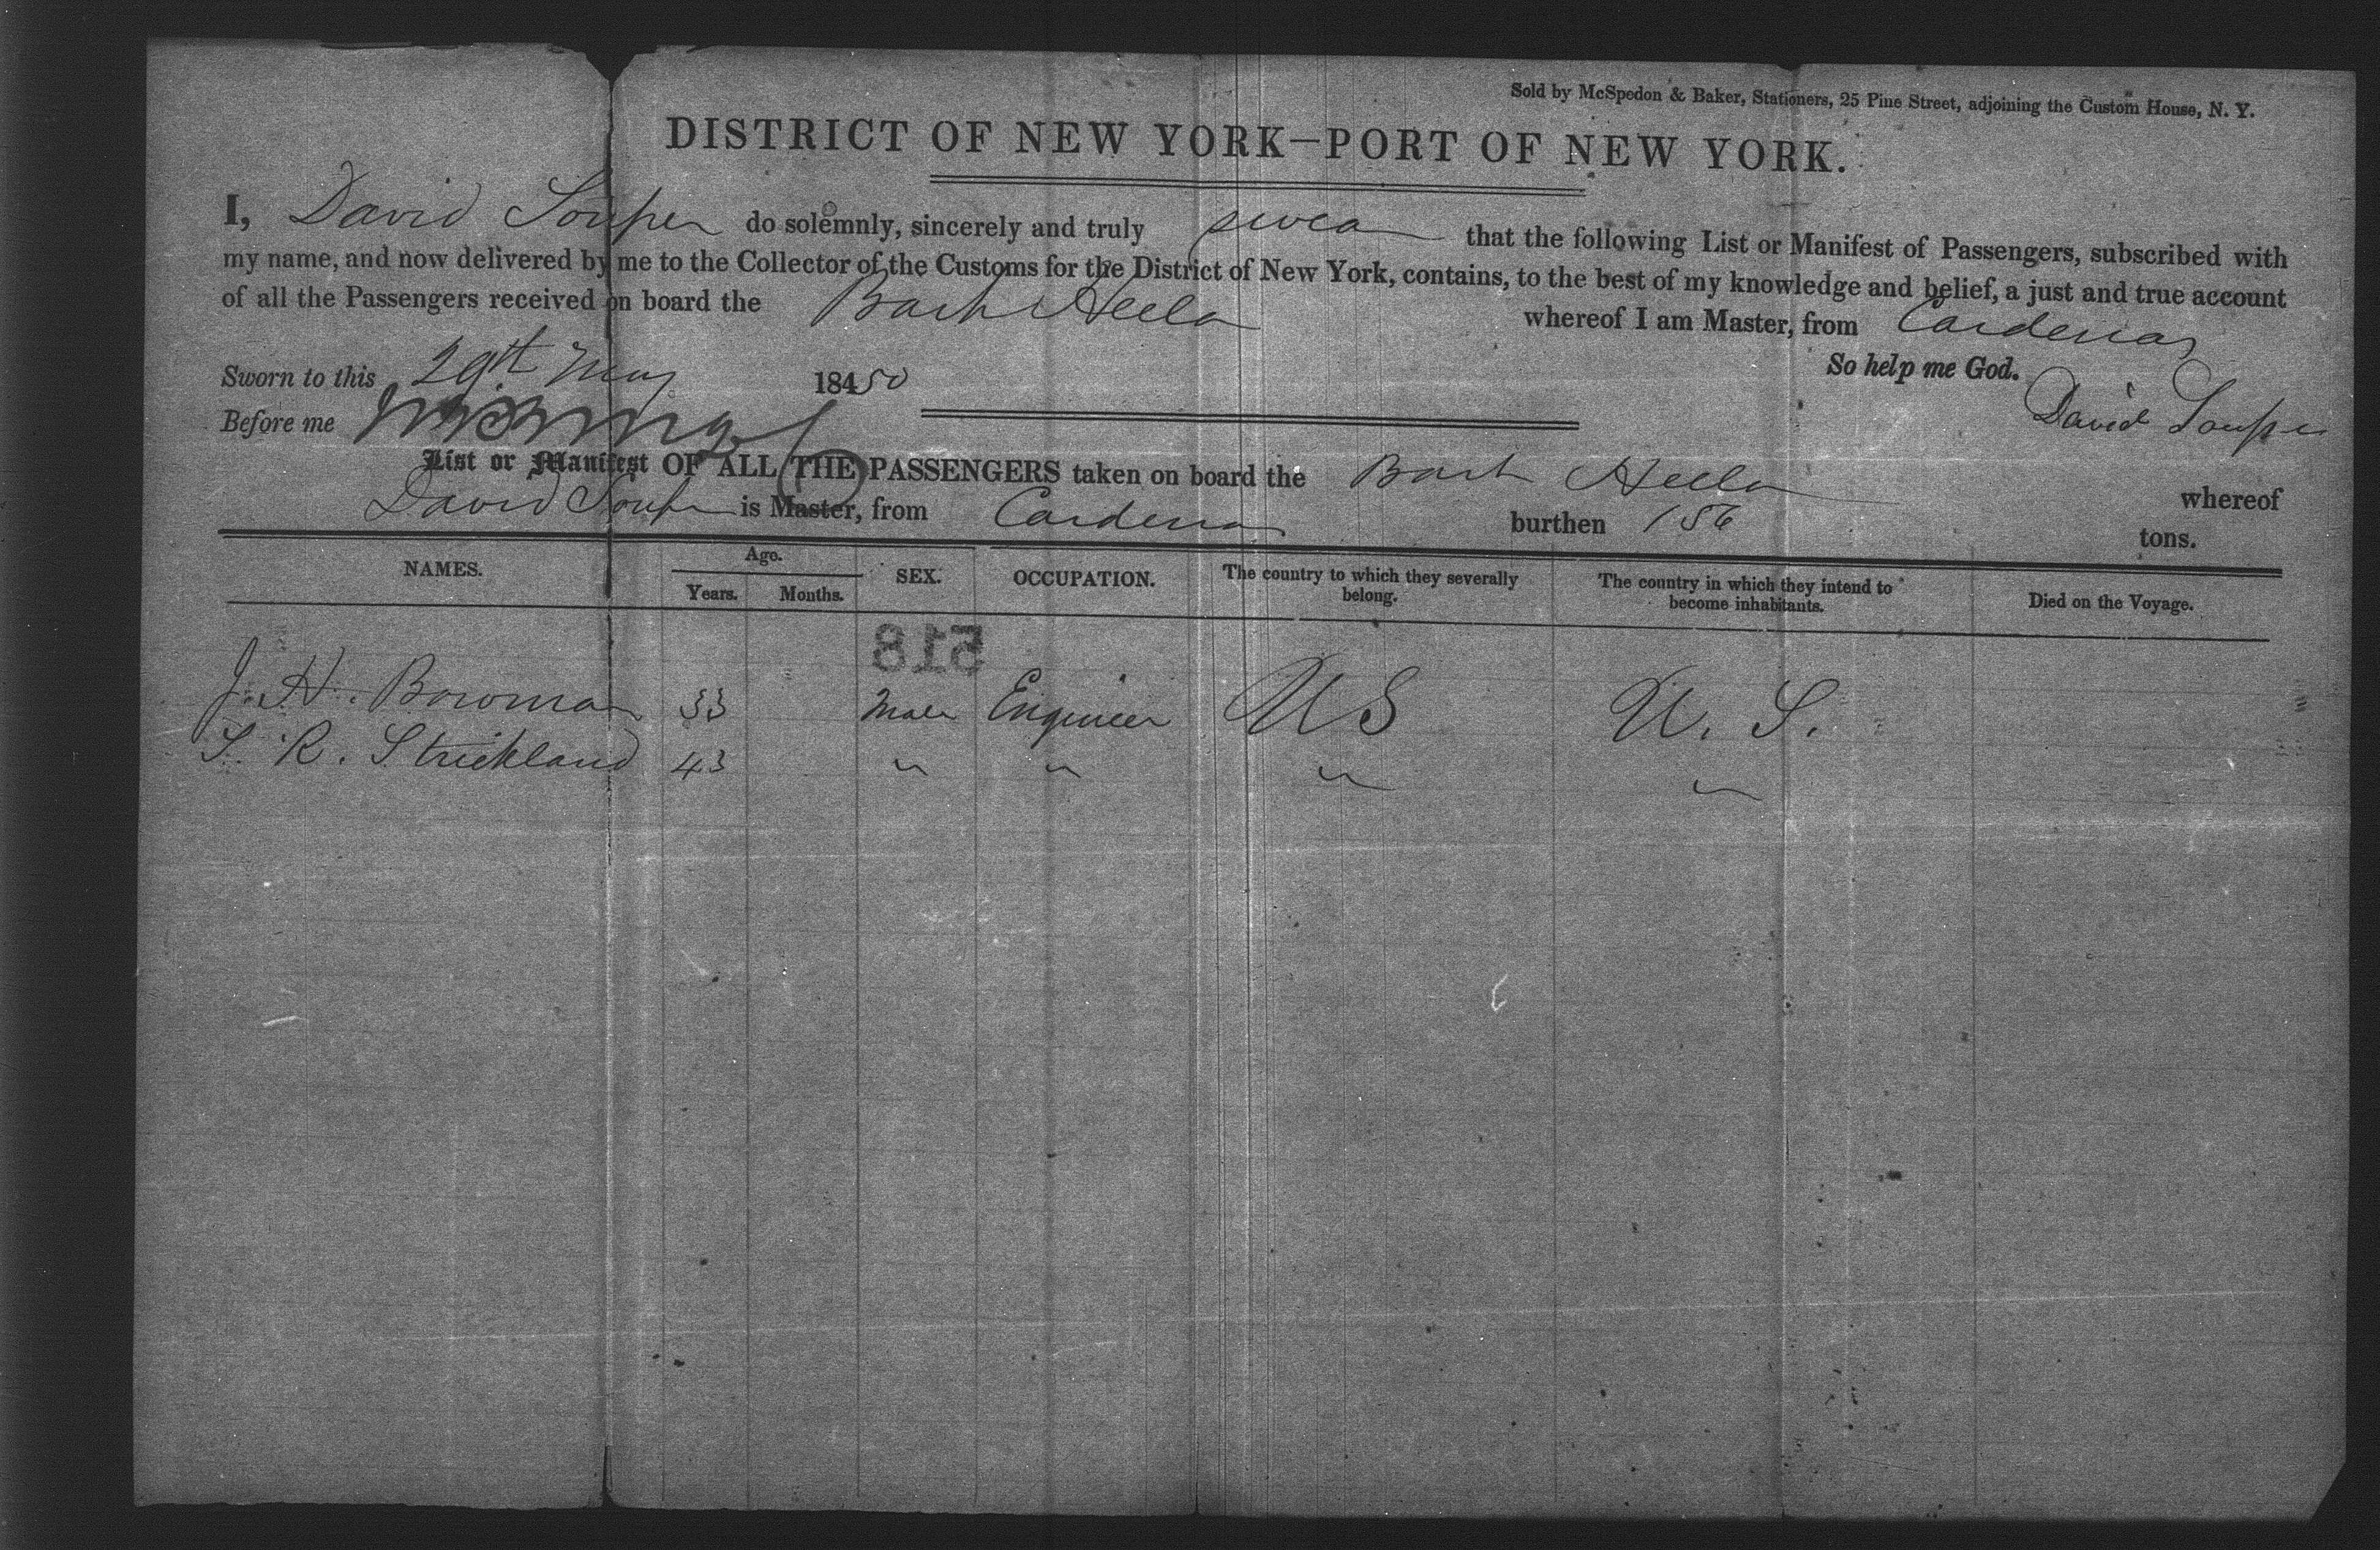 Sold by McSpedon & Baker, Stationers, 25 Pine Street, adjoining the Custom House, N. Y.
DISTRICT OF NEW YORK—PORT OF NEW YORK.
I, David Souper do solemnly, sincerely and truly swear that the following List or Manifest of Passengers, subscribed with
my name, and now delivered by me to the Collector of the Customs for the District of New York, contains, to the best of my knowledge and belief, a just and true account
of all the Passengers received on board the Bark whereof I am Master, from Cardenas
So help me God.
Sworn to this 29th May 18450
David Souper
Before me
List or Manifest OF ALL THE PASSENGERS taken on board the Bark whereof
David Souper is Master, from Cardenas burthen 156 tons.
NAMES. Age. Years. Months. SEX. OCCUPATION. The country to which they severally belong. The country in which they intend to become inhabitants. Died on the Voyage.
518
J. H. Bowman 33 Male Engineer US U. S.
S. R. Strickland 43 " " " "